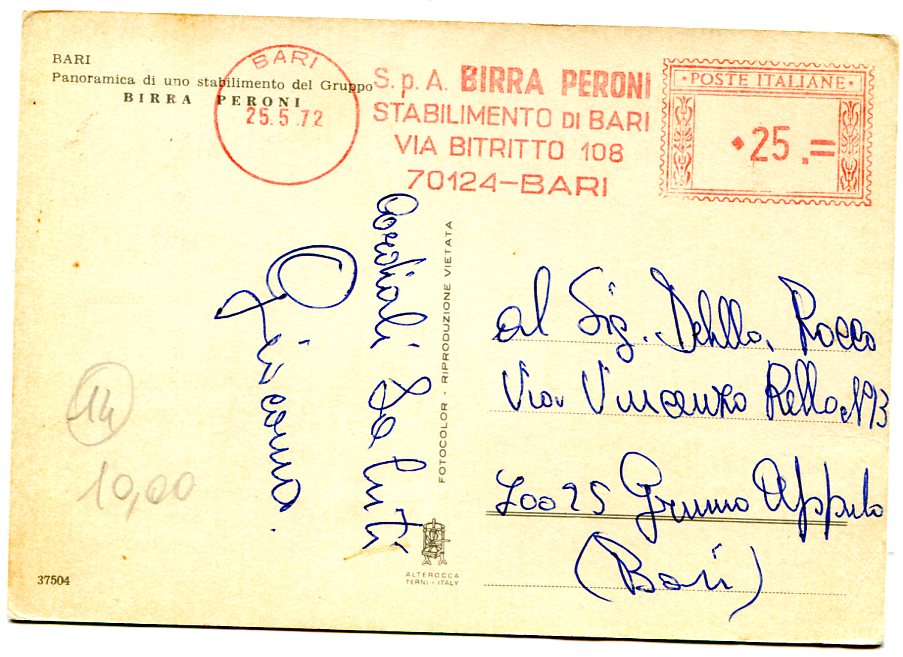 BARI
Panoramica di uno stabilimento del Gruppo
BIRRA PERONI
BARI
25.5.72
S.p.A. BIRRA PERONI
STABILIMENTO DI BARI
VIA BITRITTO 108
70124-BARI
POSTE ITALIANE
25.=
Cordiali Saluti
Giacomo.
FOTOCOLOR - RIPRODUZIONE VIETATA
al Sig. Rocco
Via Vincenzo
70025 Grumo Appula
(Bari)
14
10,00
37504
ALTEROCCA
TERNI - ITALY